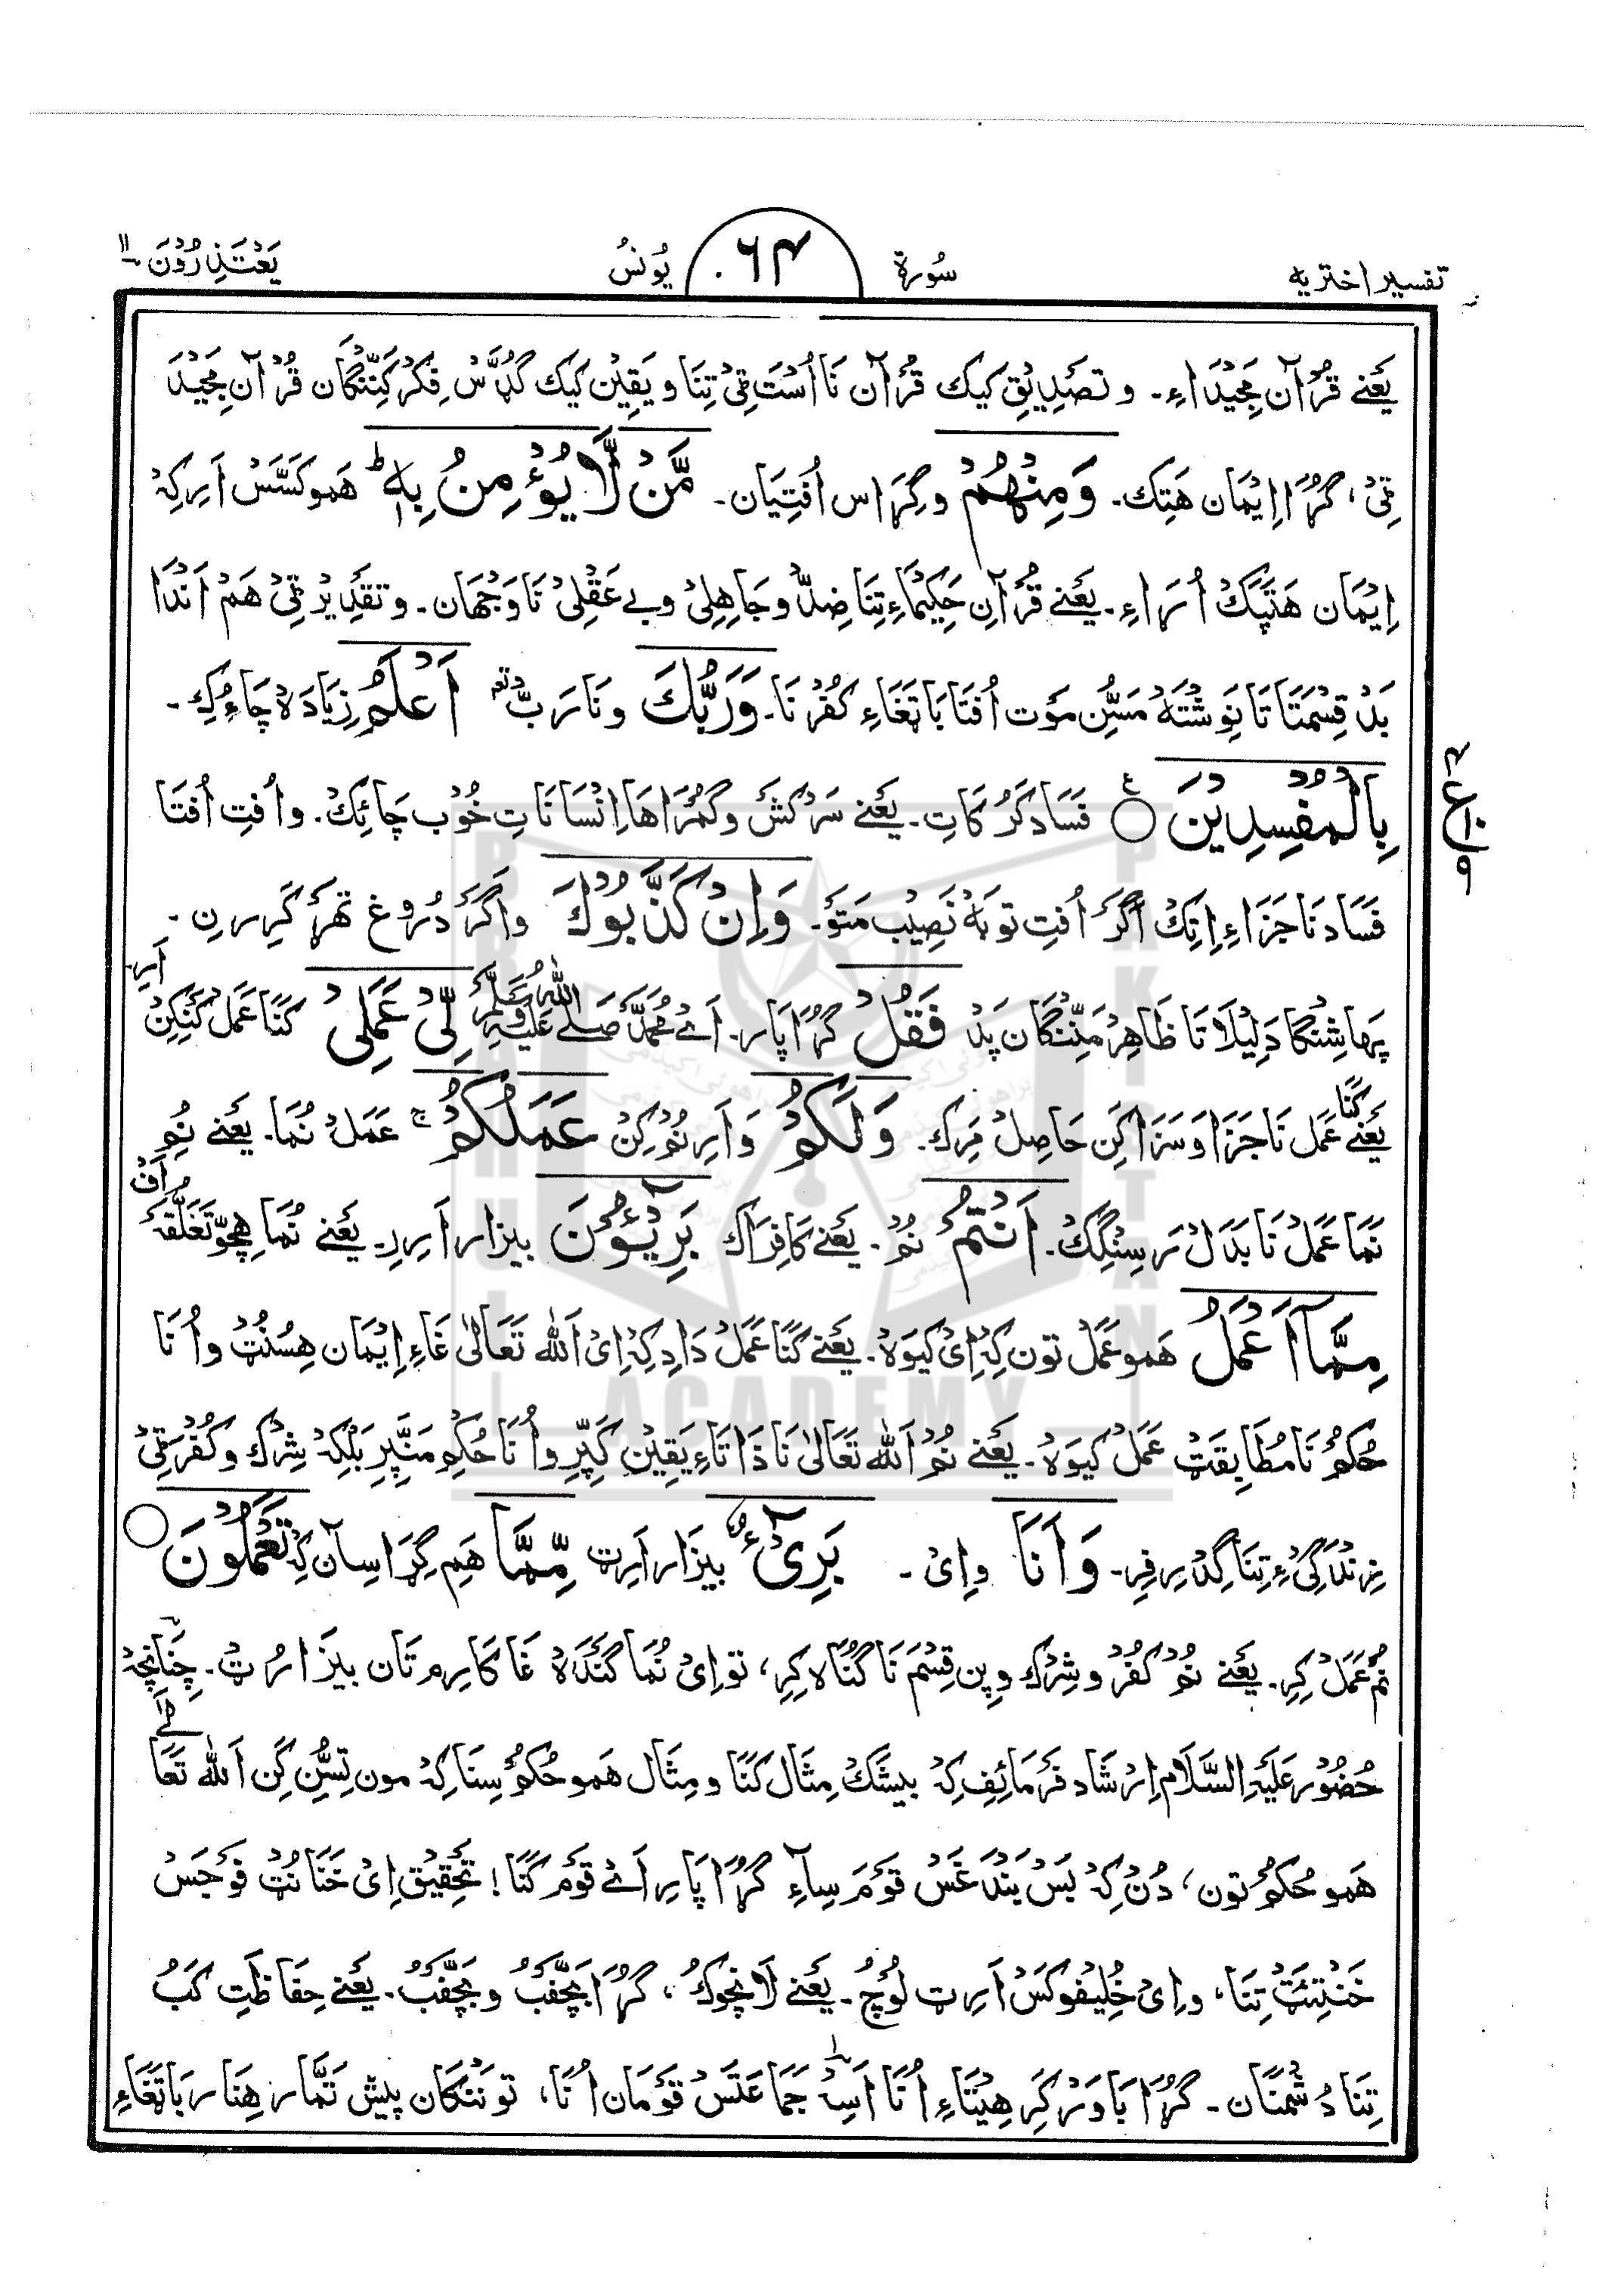 تفسیر اختریه
سُورة
۰۶۴
یُونسُ
یَعْتَذِرُوْنَ ۱۱
یَعْنے قُرْآنِ مَجِیْدَاءِ۔ و تَصْدِیْق کیک قُرْآن نَا اُسْتَ ٹِیْ تِنَا و یَقِیْن کیک گُڈَّسْ فِکْر کَنِّنْگَان قُرْآنِ مَجِیْد
ٹِیْ، گُڑَا اِیْمَان هَتِک۔ وَمِنْهُمْ و گِڑَاس اُفْتِیَان۔ مَّنْ لَّا یُؤْمِنُ بِهٖ ؕ هَمو کَسَّسْ اَرِ کِہْ
اِیْمَان هَتَپَکْ اُرَاءِ۔ یَعْنے قُرْآنِ حَکِیْمَاءِ تِنَا ضِدّ و جَاهِلِیْ و بے عَقْلِیْ نَا وَجْهَان۔ و تَقْدِیْر ٹِیْ هَمْ اَنْدَا
بَدْ قِسْمَتَا تَا نِوِشْتَهْ مَسُّن مَوْت اُفْتَا بَا تَغَاءِ کُفْر نَا۔ وَرَبُّكَ و نَا رَبّ اَعْلَمُ زِیَادَهْ چَاءِکِ۔
بِالْمُفْسِدِیْنَ ۝ فَسَادْ گَرْ کَاتِ۔ یَعْنے سَرْکَشْ و گُمْرَاهَا اِنْسَانَاتِ خُوْب چَائِکْ۔ و اُفْتِ اُفْتَا
فَسَاد نَا جَزَاءِ اِتِکْ اَگَرْ اُفْتِ تَوْبَهْ نَصِیْب مَتَوْ۔ وَاِنْ كَذَّبُوْكَ و اَگَرْ دُرُوغ تهَرْ کَرِر نِ۔
پَهَا شِنْگَا دَلِیْلَا تَا ظَاهِرْ مَنِّنْگَان پَدْ فَقُلْ گُڑَا پَار۔ اَےْ مُحَمَّدْ صَلَے اللّٰهُ عَلَیْہِ وَسَلَّمَ لِّیْ عَمَلِیْ کَنَا عَمَلْ کَنْکِنْ اَرِ۔
یَعْنے کَنَا عَمَل نَا جَزَا وَ سَزَا کَنِ حَاصِلْ مَرِک۔ وَلَكُمْ وَ اَرِ نُمْ کِنْ عَمَلُكُمْ ۚ عَمَلْ نُمَا۔ یَعْنے نُمِ
نُمَا عَمَلْ نَا بَدَال رَسِنْگِکْ۔ اَنْتُمْ نُمْ۔ یَعْنے کَافِرَاك بَرِیْٓئُوْنَ بیزار اَرِرِ۔ یَعْنے نُمَا هِچّ تَعَلُّقَہ اَفْ
مِمَّاۤ اَعْمَلُ هَمو عَمَل تون کِہْ اِیْ کیوَهْ۔ یَعْنے کَنَا عَمَلْ دَادِ کِہْ اِیْ اَللّٰه تَعَالیٰ غَاءِ اِیْمَان هِسُنُٹْ و اُنَا
حُکْم نَا مُطَابِقَٹْ عَمَلْ کیوَهْ۔ یَعْنے نُمْ اَللّٰه تَعَالیٰ نَا ذَاتَاءِ یَقِیْن کَپِّر و اُنَا حُکْم مَنِّپِر بَلْکِہْ شِرْك و کُفْر ٹِیْ
زِنْدَگِیْ ءِ تِنَا گِدْرِفِر۔ وَاَنَا و اِیْ ۔ بَرِیْٓءٌ بیزَار اَرِٹ مِّمَّا هَم گِڑَا سِآن کِہ تَعْمَلُوْنَ ۝
نُم عَمَلْ کِرِ۔ یَعْنے نُمْ کُفْر و شِرْك و پِن قِسْم نَا گُنَاه کِرِ، تو اِیْ نُمَا گَنْدَهْ غَا کَارِم تَان بیزَار اُٹْ۔ چِنَانْچِہْ
حُضُوْر عَلَیْہِ السَّلَام اِرْشَاد فَرْمَائِف کِہْ بیشَکْ مِثَال کَنَا و مِثَال هَمو حُکْم سِنَا کِہْ مون تِسُّنِ کَنِ اَللّٰه تَعَالٰے
هَمو حُکْم تون، دُنْ کِہْ بَسْ بَنْدَغَسْ قَوْمَ سِآءِ گُڑَا پَارِ اَےْ قَوْم کَنَا! تَحْقِیْق اِیْ خَنَانُٹْ فَوْجَسْ
خَنْتِئَٹْ تِنَا، و اِیْ خُلِیْفوکَسْ اَرِٹ لُوْچْ۔ یَعْنے لَانچوكْ، گُڑَا بَچِّفَبْ و بَچِّفَبْ۔ یَعْنے حِفَاظَتِ کَبْ
تِنَا دُشْمَنَان۔ گُڑَا بَاوَرْ کَرِ هِیْتَاءِ اُنَا اَسِہْ جَمَاعَتَسْ قَوْمَان اُنَا، تو نَنْکَان پیش تَمَّار هِنَار بَا تَغَاءِ